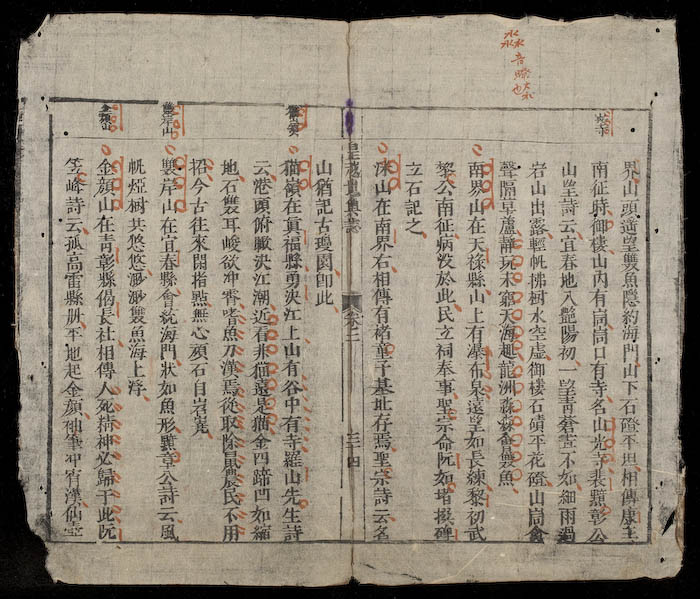 淼 音眇大水也
界山頭遥望雙魚隱約海門山下石磴平坦相傳康王
南征時御樓山内有崗崗口有寺名山光寺裴黯彰公
山望詩云宜春地入艷陽初一望靑蒼畫不如細雨過
岩山出露輕帆拂樹水空虚御樓石嶺平花磴山崗禽
聲隔草蘆静玩未窮天海趣龍洲淼淼會雙魚
南界山在天祿縣山上有瀑布泉遠望如長練黎初武
黎公南征病没於此民立祠奉事聖宗命阮如堵撰碑
立石記之
山在南界右相傳有褚童子基址存焉聖宗詩云名
皇越地輿誌 卷二 二十四
山猶記古瓊園卽此
猫嶺
猫嶺在真福縣勇决江上山有谷中有寺羅山先生詩
云港頭俯瞰决江潮近看非猫遠是猫金四蹄凹如縮
地石雙耳峻欲冲霄嗜魚刀漢焉從取除鼠農民不用
招今古往來閑指點無心頑石自岧嶤
雙岸山
雙岸山在宜春縣會統海門狀如魚形冀章公詩云風
帆煙樹共悠悠渺渺雙魚海上浮
金顔山
金顔山在靑彰縣偈長社相傳人死精神必歸于此阮
笠峰詩云孤高雷縣平地起金顔袖筆冲霄漢仙壺